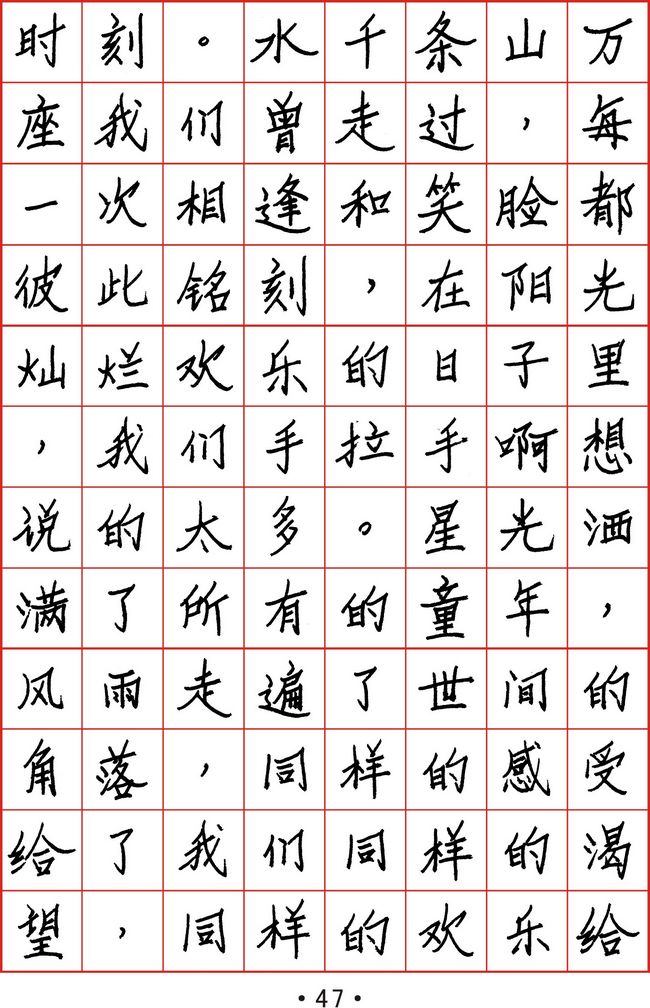 时刻。水千条山万
座我们曾走过，每
一次相逢和笑脸都
彼此铭刻，在阳光
灿烂欢乐的日子里
，我们手拉手啊想
说的太多。星光洒
满了所有的童年，
风雨走遍了世间的
角落，同样的感受
给了我们同样的渴
望，同样的欢乐给
·47·